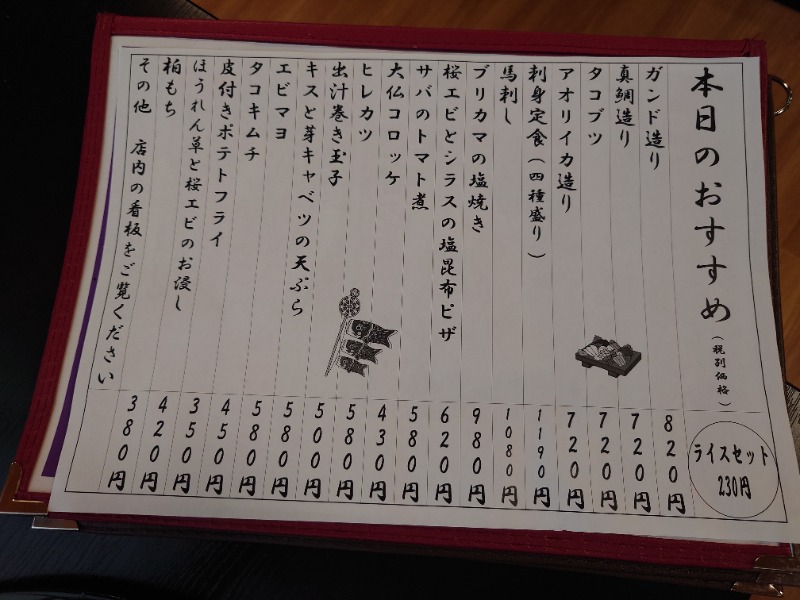 本日のおすすめ（税別価格）
ライスセット
230円
ガンド造り 820円
真鯛造り 720円
タコブツ 720円
アオリイカ造り 720円
刺身定食（四種盛り） 1190円
馬刺し 1080円
ブリカマの塩焼き 980円
桜エビとシラスの塩昆布ピザ 620円
サバのトマト煮 580円
大仏コロッケ 430円
ヒレカツ 580円
出汁巻き玉子 500円
キスと芽キャベツの天ぷら 580円
エビマヨ 580円
タコキムチ 450円
皮付きポテトフライ 350円
ほうれん草と桜エビのお浸し 420円
柏もち 380円
その他 店内の看板をご覧ください